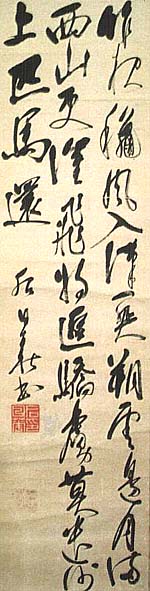 昨夜穐風入漢關朔雲邊月滿
西山更催飛將追驕虜莫遣沙
上匹馬還
書